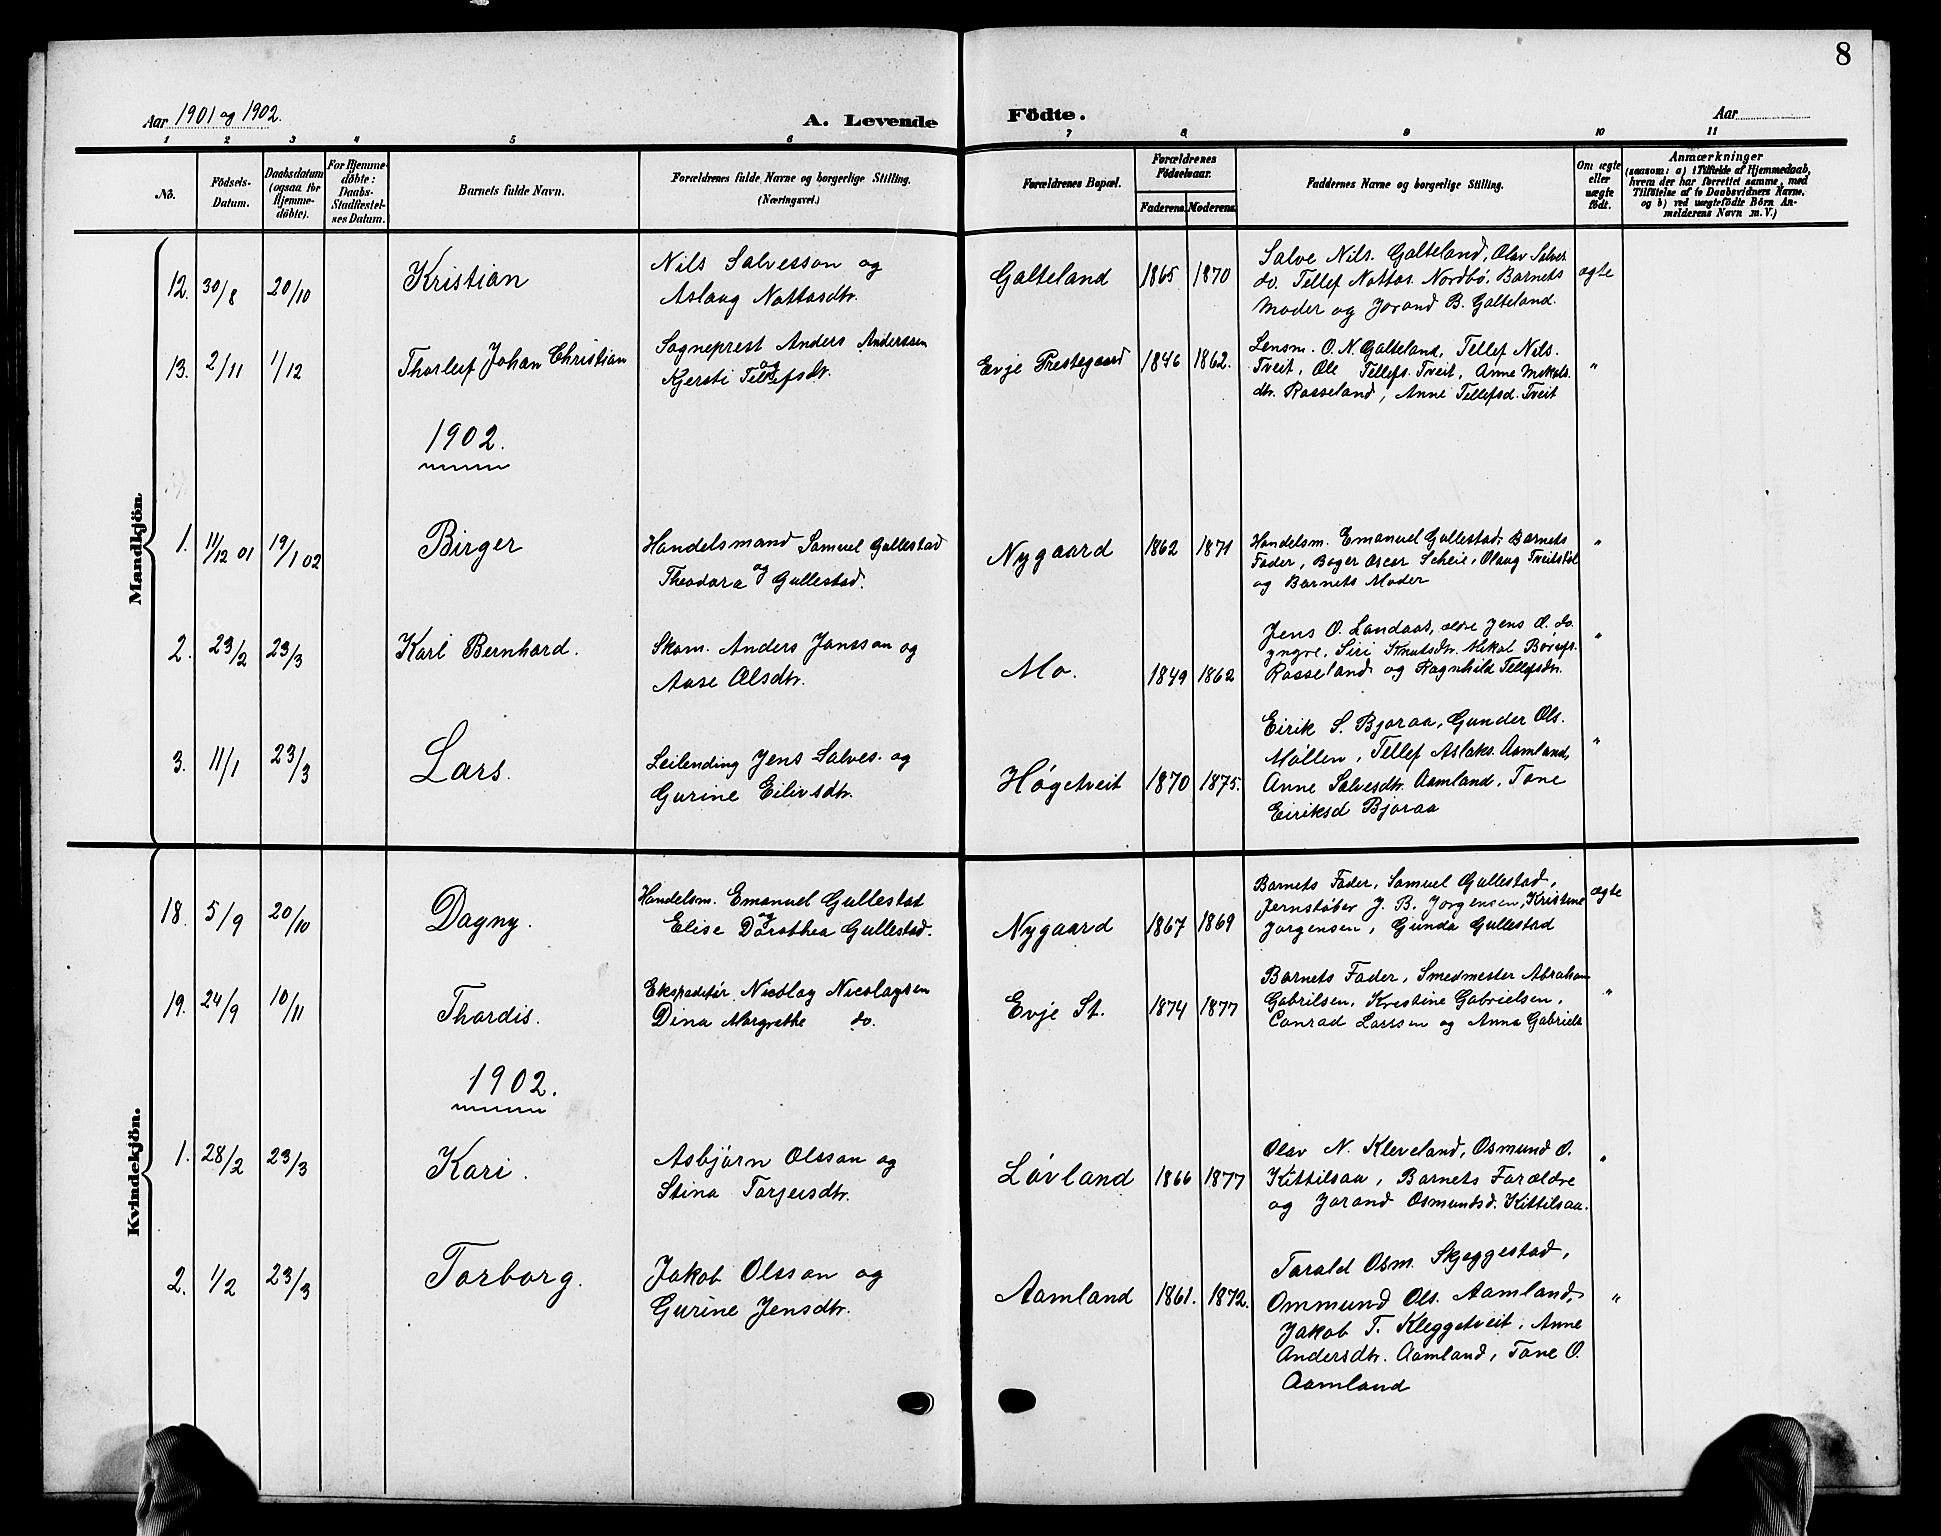 8
Aar 1901 og 1902.
A. Levende
Födte.
Aar
1 2 3 4 5 6 7 8 9 10 11
No.
Födsels-
Datum.
Daabsdatum
(ogsaa for
Hjemme-
döbte).
For Hjemme-
döbte:
Daabs-
Stadfæstel-
ses Datum.
Barnets fulde Navn.
Forældrenes fulde Navne og borgerlige Stilling.
(Næringsvei.)
Forældrenes Bopæl.
Forældrenes
Födselsaar.
Faderens. Moderens.
Faddernes Navne og borgerlige Stilling.
Om ægte
eller
uægte
födt.
Anmærkninger
(saasom: a) i Tilfælde af Hjemmedaab,
hvem der har forrettet samme, med
Tilföielse af to Daabsvidners Navne,
og b) ved uægtefödte Börn An-
melderens Navn m. V.)
Mandkjön.
12. 30/8 20/10 Kristian
Nils Salvesson og
Aslaug Nottosdtr.
Galteland 1865 1870
Salve Nils. Galteland, Olav Salves
do. Tellef Nottos. Nordbø, Barnets
Moder og Jorand B. Galteland.
ægte
13. 2/11 1/12 Thorleif Johan Christian
Sogneprest Anders Anderssen
og
Kjersti Tellefsdr.
Evje Prestegaard 1846 1862.
Lensm. O. N. Galteland, Tellef Nils.
Tveit, Ole Tellefs. Tveit, Anne Mikals
dtr. Rosseland, Anne Tellefsd. Tveit
"
1902.
1. 11/12 01 19/1 02 Birger
Handelsmand Samuel Gullestad
og
Theodora Gullestad.
Nygaard 1862 1871
Handelsm. Emanuel Gullestad, Barnets
Fader, Bager Oscar Scheie, Olaug Tveitstøl
og Barnets Moder
"
2. 23/2 23/3 Karl Bernhard.
Skom. Anders Jonsson og
Aase Olsdtr.
Mo. 1849 1862
Jens O. Landaas, ældre Jens O. do.
yngre, Siri Knutsdtr. Mikal Børufs.
Rosseland og Ragnhild Tellefsdtr.
"
3. 11/1 23/3 Lars.
Leilending Jens Salves. og
Gurine Eilivsdtr.
Høgetveit 1870 1875.
Eirik S. Bjoraa, Gunder Ols.
Møllen, Tellef Aslaks. Aamland,
Anne Salvesdtr. Aamland, Tone
Eiriksd Bjoraa
"
Kvindekjön.
18. 5/9 20/10 Dagny.
Handelsm. Emanuel Gullestad
og
Elise Dorothea Gullestad.
Nygaard 1867 1869
Barnets Fader, Samuel Gullestad,
Jernstøber J. B. Jorgensen, Kristine
Jorgensen, Gunda Gullestad
ægte
19. 24/9 10/11 Thordis.
Ekspeditør Nicolay Nicolaysen
Dina Margrethe do.
Evje St. 1874 1877
Barnets Fader, Smedmester Abraham
Gabrilsen, Kristine Gabrielsen,
Conrad Larssen og Anna Gabriels
"
1902.
1. 28/2 23/3 Kari.
Asbjørn Olsson og
Stina Torjusdtr.
Løvland 1866 1877
Olav N. Kleveland, Osmund O.
Kittilsaa, Barnets Forældre
og Jorand Osmundsd. Kittilsaa.
"
2. 1/2 23/3 Torborg.
Jakob Olsson og
Gurine Jensdtr.
Aamland 1861. 1872.
Tarald Osm. Skjeggestad,
Ommund Ols. Aamland,
Jakob T. Kleggetveit, Anne
Andersdtr. Aamland, Tone O.
Aamland
"